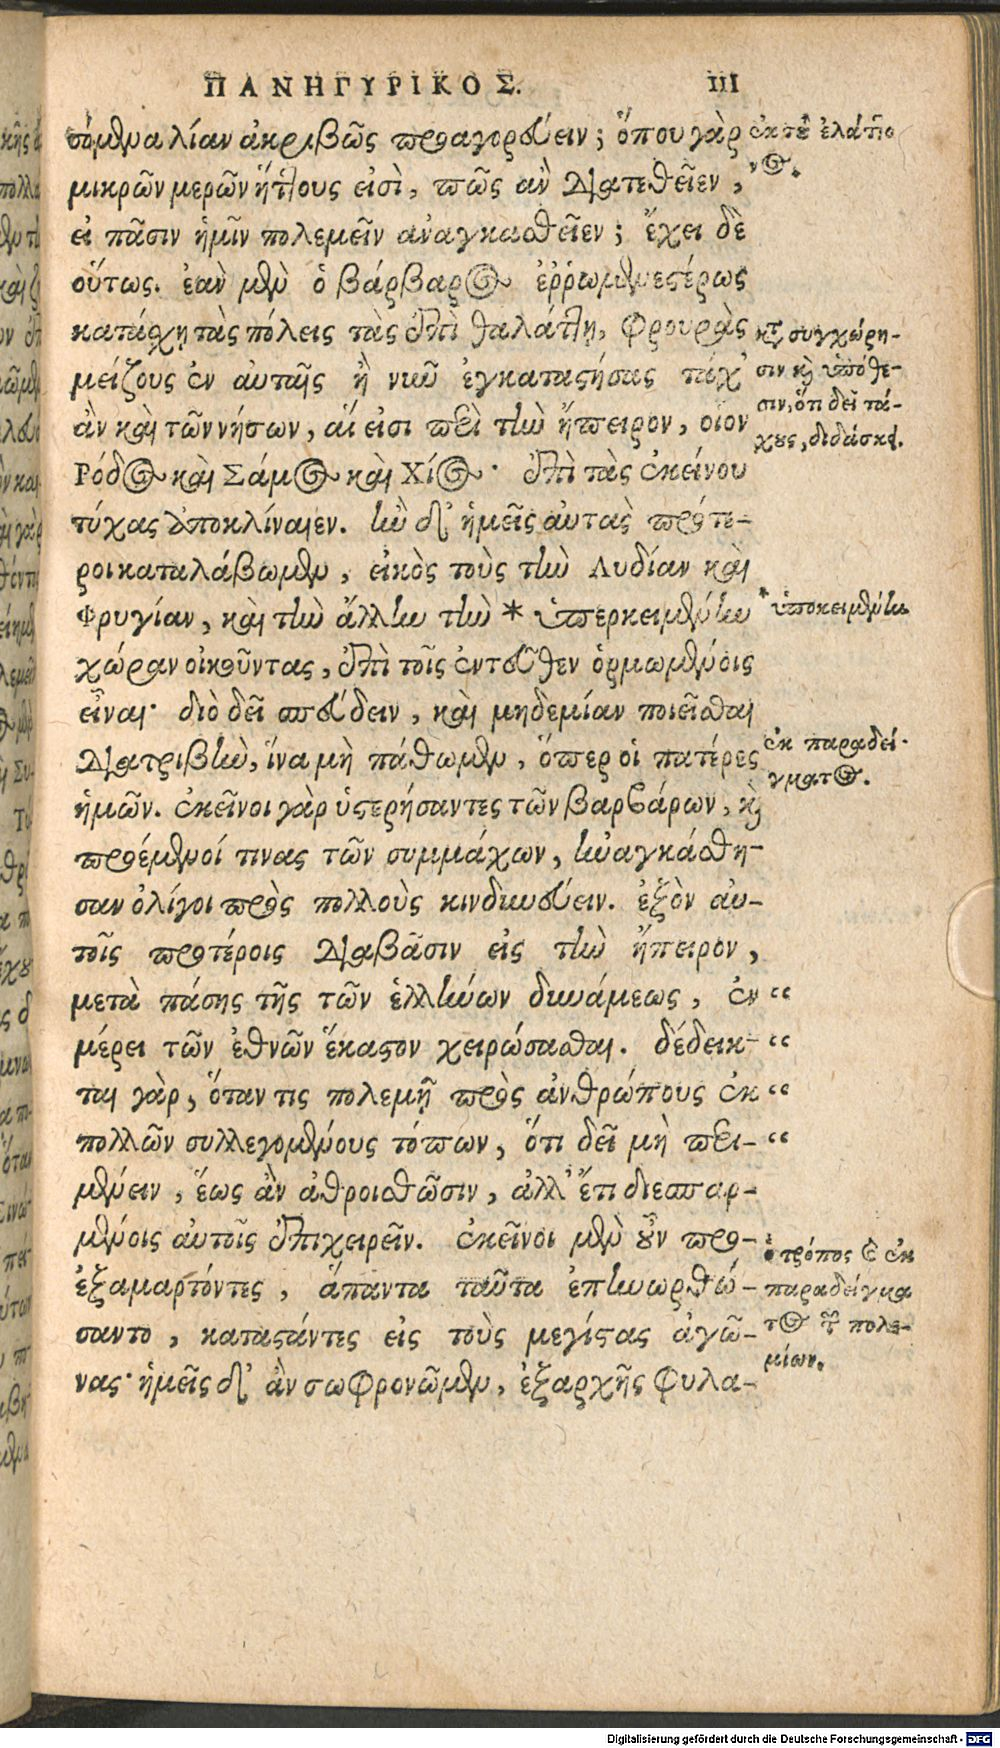 ΠΑΝΗΓΥΡΙΚΟΣ. 111
σόμενα λίαν ἀκριβῶς προαγορεύειν; ὅπου γὰρ
ἐκ τοῦ ἐλάττο
νος.
μικρῶν μερῶν ἥττους εἰσὶ, πῶς ἂν διατεθεῖεν,
εἰ πᾶσιν ἡμῖν πολεμεῖν ἀναγκασθεῖεν; ἔχει δὲ
οὕτως. ἐὰν μὲν ὁ βάρβαρος ἐῤῥωμενεστέρως
κατάσχῃ τὰς πόλεις τὰς ἐπὶ θαλάττῃ, φρουρὰς
μείζους ἐν αὐταῖς ἢ νῦν ἐγκαταστήσας τάχ᾽
ἂν καὶ τῶν νήσων, αἵ εἰσι περὶ τὴν ἤπειρον, οἷον
κατὰ συγχώρη-
σιν καὶ ὑπόθε-
σιν, ὅτι δεῖ τά-
χους, διδάσκει.
Ρόδος καὶ Σάμος καὶ Χίος· ἐπὶ τὰς ἐκείνου
τύχας ἀποκλίναιεν. ἢν δ᾽ ἡμεῖς αὐτὰς πρότε-
ροι καταλάβωμεν, εἰκὸς τοὺς τὴν Λυδίαν καὶ
Φρυγίαν, καὶ τὴν ἄλλην τὴν * ὑπερκειμένην
* ὑποκειμένην
χώραν οἰκοῦντας, ἐπὶ τοῖς ἐντεῦθεν ὁρμωμένοις
εἶναι· διὸ δεῖ σπεύδειν, καὶ μηδεμίαν ποιεῖσθαι
διατριβὴν, ἵνα μὴ πάθωμεν, ὅπερ οἱ πατέρες
ἐκ παραδεί-
γματος.
ἡμῶν. ἐκεῖνοι γὰρ ὑστερήσαντες τῶν βαρβάρων, καὶ
προέμενοί τινας τῶν συμμάχων, ἠναγκάσθη-
σαν ὀλίγοι πρὸς πολλοὺς κινδυνεύειν. ἐξὸν αὐ-
τοῖς προτέροις διαβᾶσιν εἰς τὴν ἤπειρον,
μετὰ πάσης τῆς τῶν ἑλλήνων δυνάμεως, ἐν “
μέρει τῶν ἐθνῶν ἕκαστον χειρώσασθαι. δέδεικ- “
ται γὰρ, ὅταν τις πολεμῇ πρὸς ἀνθρώπους ἐκ “
πολλῶν συλλεγομένους τόπων, ὅτι δεῖ μὴ περι- “
μένειν, ἕως ἂν ἀθροισθῶσιν, ἀλλ᾽ ἔτι διεσπαρ-
μένοις αὐτοῖς ἐπιχειρεῖν. ἐκεῖνοι μὲν οὖν προ-
ἐξαμαρτόντες, ἅπαντα ταῦτα ἐπηνωρθώ-
σαντο, καταστάντες εἰς τοὺς μεγίστας ἀγῶ-
νας· ἡμεῖς δ᾽ ἂν σωφρονῶμεν, ἐξαρχῆς φυλα-
ὁ τρόπος ὁ ἐκ
παραδείγμα
τος τῶν πολε-
μίων.
Digitalisierung gefördert durch die Deutsche Forschungsgemeinschaft - DFG